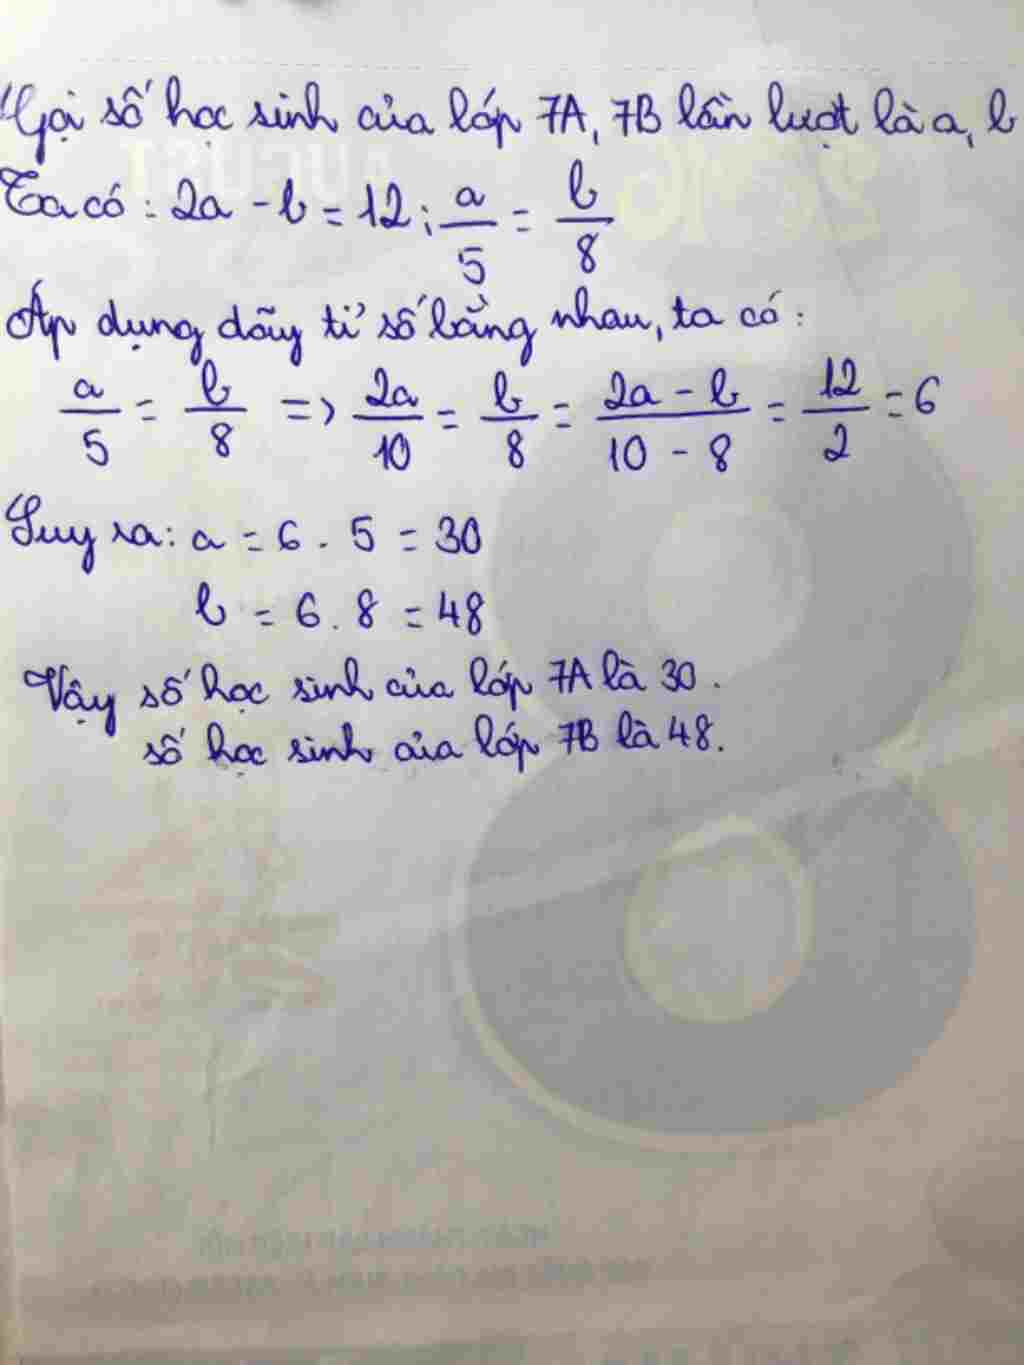 Gọi số học sinh của lớp 7A, 7B lần lượt là a, b
Ta có : 2a - b = 12 ; a/5 = b/8
Áp dụng dãy tỉ số bằng nhau, ta có :
a/5 = b/8 => 2a/10 = b/8 = 2a - b/10 - 8 = 12/2 = 6
Suy ra : a = 6 . 5 = 30
b = 6 . 8 = 48
Vậy số học sinh của lớp 7A là 30 .
số học sinh của lớp 7B là 48.